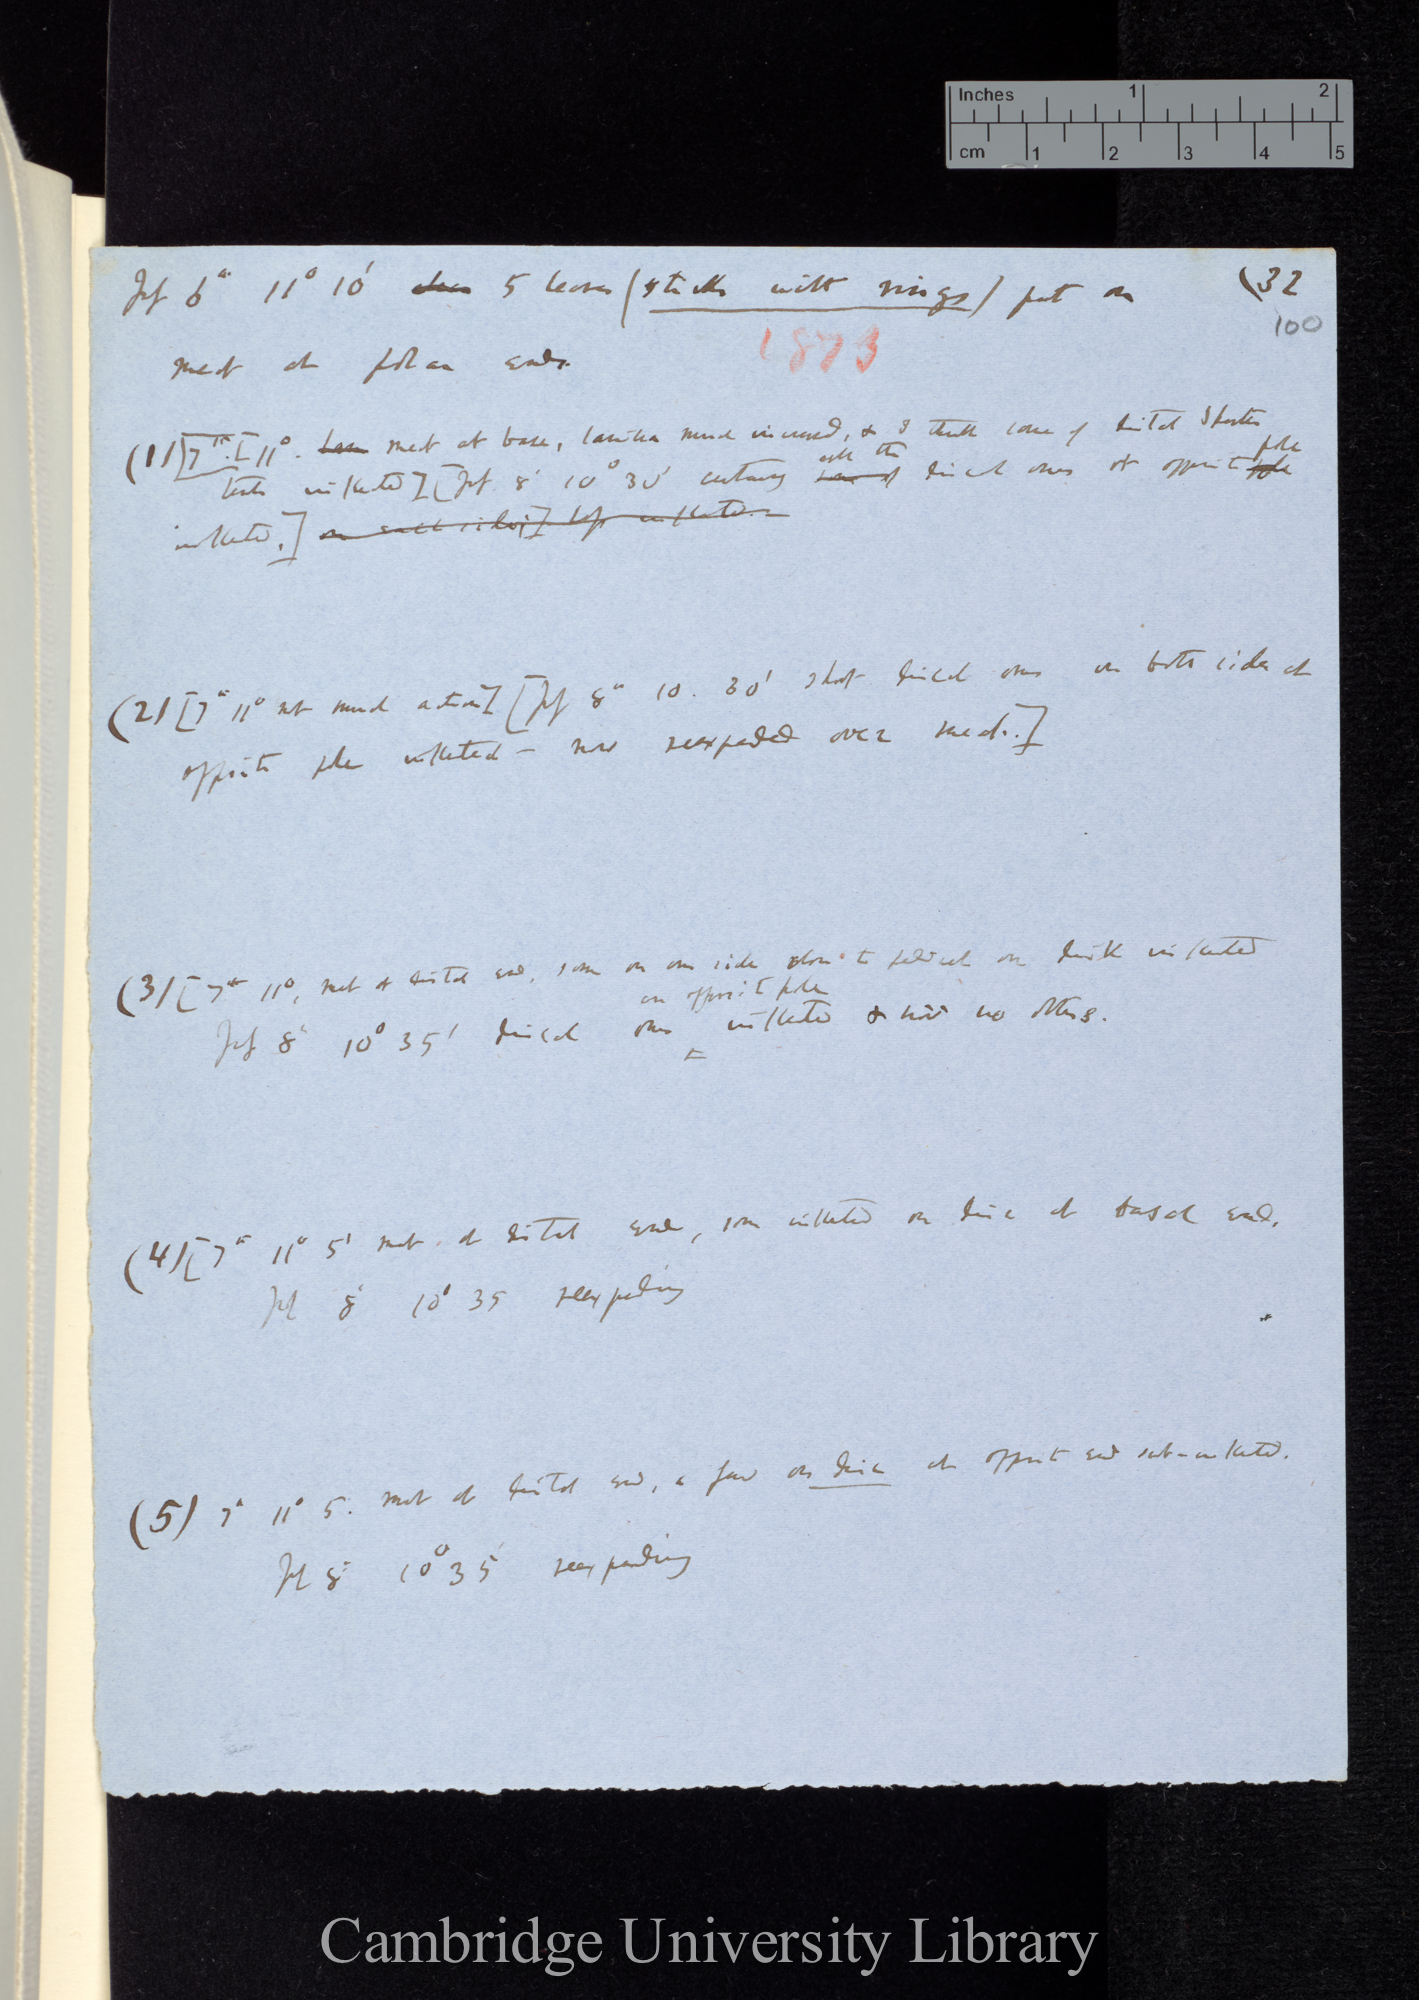 Inches 1 2
cm 1 2 3 4 5
July 6th 11° 10' 5 leaves (sticks with rings) put on
(32
100
1873
meat at polar ends.
(1) [7th. [11°. meat at base, lamina much incurved, & I think some of distal shorter
all the pole
tents inflected] [July 8 10° 30' certainly discal ones at opposite
inflected.] on each side,] tip inflected.—
(2) [7th 11° not much action] [July 8th 10. 30' short discal ones on both sides at
opposite pole inflected — now reexpanded over meat.]
(3) [7th 11°, meat at distal end, some on one side close to pedicel on disk inflected
on opposite pole
July 8 10° 35' discal ones inflected & now no others.
(4) [7th 11° 5' meat at distal end, some inflected on disc at basal end.
July 8 10° 35 reexpanding
(5) 7th 11° 5. meat at distal end, a few on disc at opposite end sub-inflected.
July 8 10° 35' reexpanding
Cambridge University Library